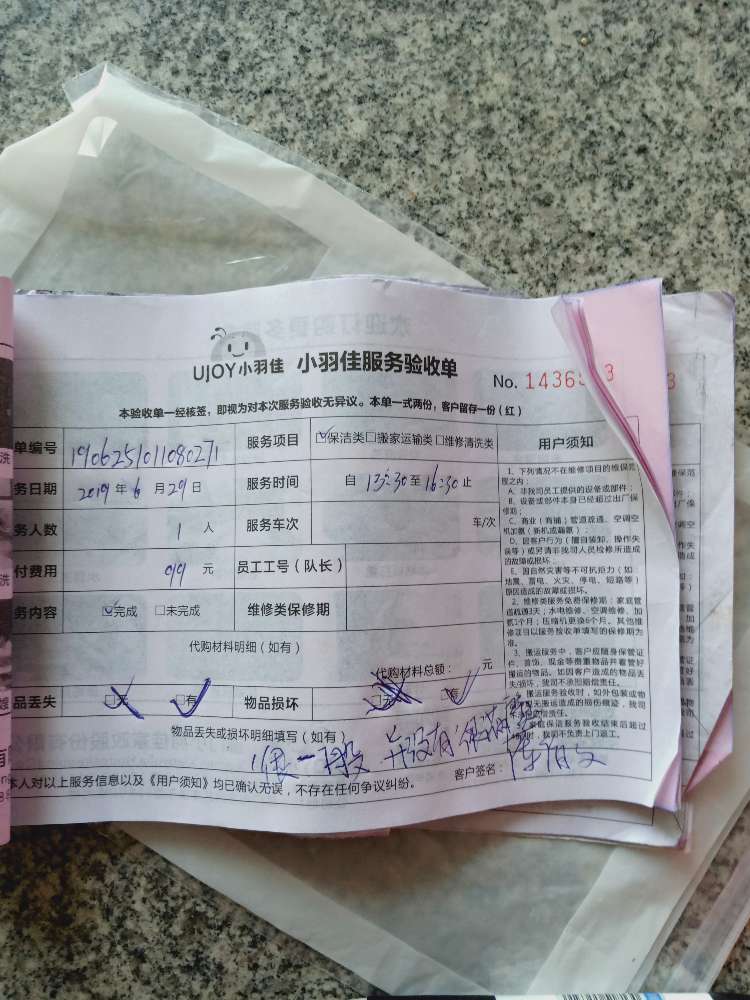 UJOY小羽佳 小羽佳服务验收单 No. 1436
本验收单一经核签，即视为对本次服务验收无异议。本单一式两份，客户留存一份（红）
单编号 1906251011080271 服务项目 ☑保洁类□搬家运输类□维修清洗类 用户须知
务日期 2019年6月29日 服务时间 自13:30至16:30止
务人数 1人 服务车次 车/次
付费用 99元 员工工号（队长）
务内容 ☑完成 □未完成 维修类保修期
代购材料明细（如有）
代购材料总额： 元
品丢失 □无 □有 物品损坏 □无 □有
物品丢失或损坏明细填写（如有）
很一般 并没有很满意
客户签名：
本人对以上服务信息以及《用户须知》均已确认无误，不存在任何争议纠纷。
1、下列情况不在维修项目的维保范
围之内：
A、非我司员工提供的设备或部件；
B、设备或部件本身已经超过出厂保
修期；
C、商业（商铺）管道疏通、空调空
机加氟（新机或漏氟）；
D、因客户行为（擅自装卸、操作失
误等）或另请非我司人员检修所造成
的故障或损坏；
E、因自然灾害等不可抗拒力（如
地震、雷电、火灾、停电、短路等）
原因造成的故障或损坏。
2、维修类服务免费保修期：家庭管
道疏通3天；水电维修、空调维修、加
氟1个月；压缩机更换6个月。其他维
修项目以服务验收单填写的保修期为
准。
3、搬运服务中，客户应随身保管证
件、首饰、现金等贵重物品并看管好
搬运的物品。如因客户造成的物品丢
失/损坏，我司不承担赔偿责任。
搬运服务验收时，如外包装或物